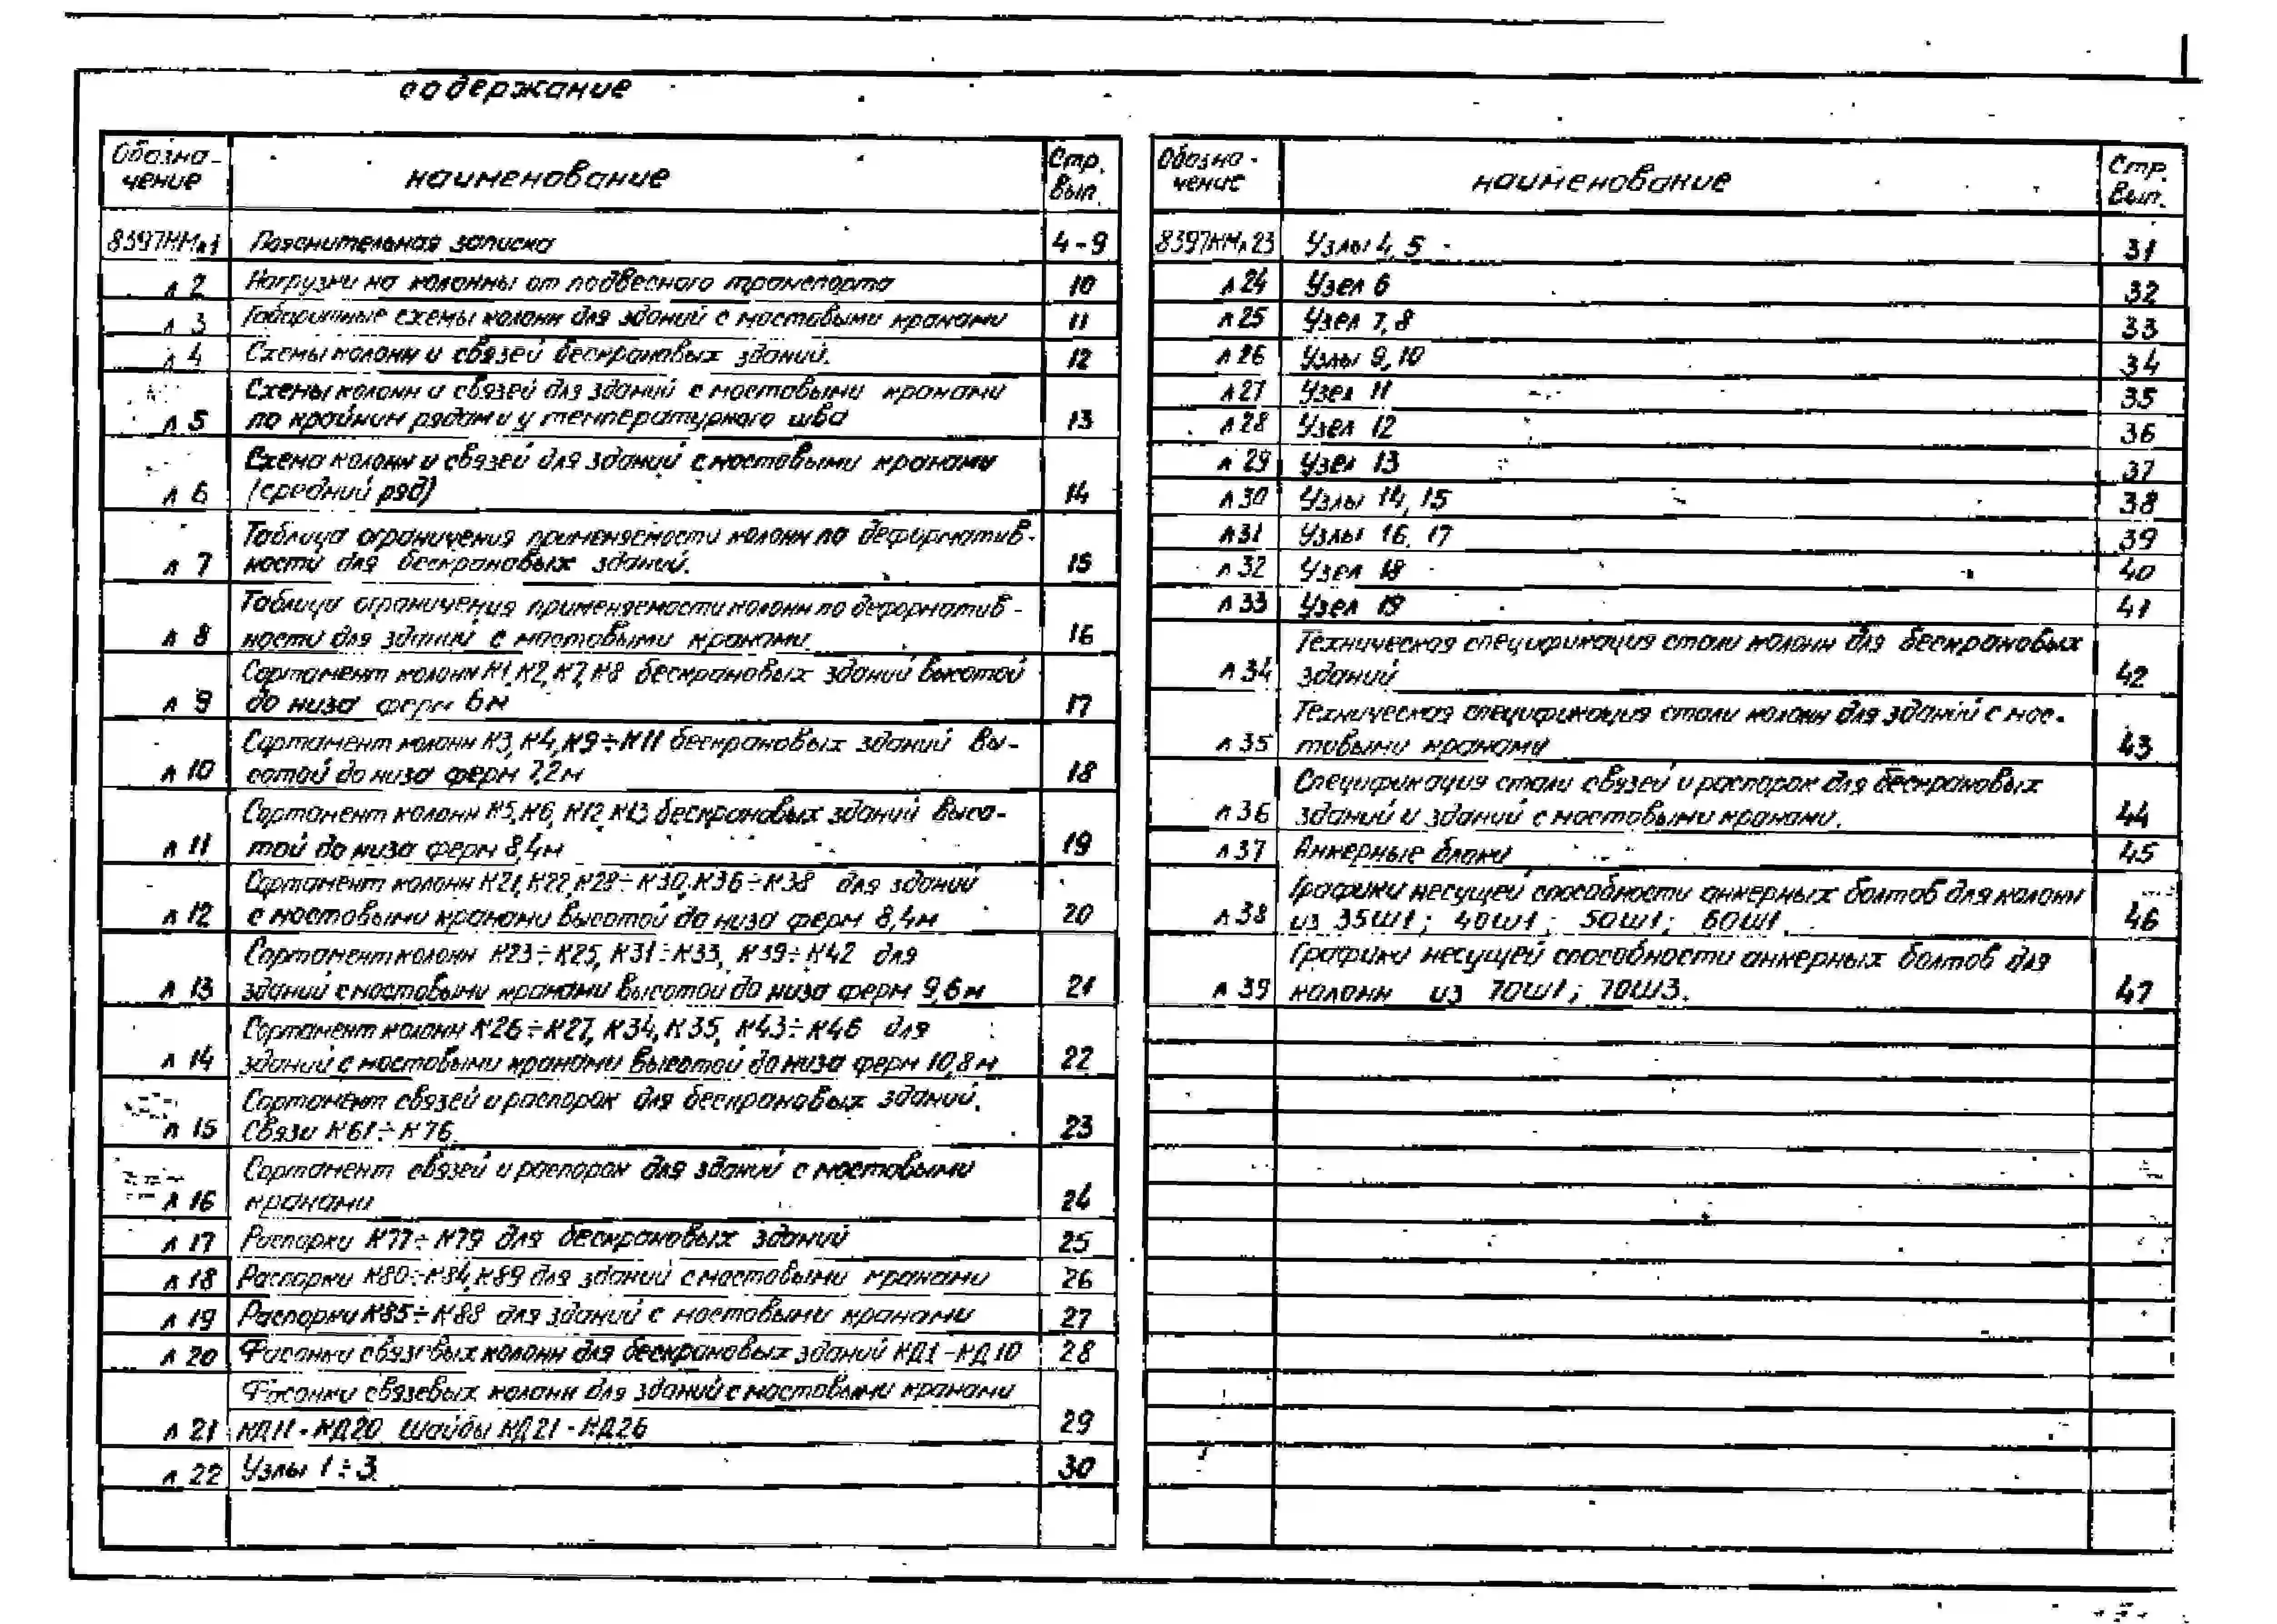 содержание
Обозна-
чение
наименование
Стр.
вып.
8397КМл1 Пояснительная записка 4-9
л 2 Нагрузки на колонны от подвесного транспорта 10
л 3 Габаритные схемы колонн для зданий с мостовыми кранами 11
л 4 Схемы колонн и связей бескрановых зданий. 12
Схемы колонн и связей для зданий с мостовыми кранами
л 5 по крайним рядам и у температурного шва 13
Схема колонн и связей для зданий с мостовыми кранами
л 6 (средний ряд) 14
Таблица ограничения применяемости колонн по деформатив-
л 7 ности для бескрановых зданий. 15
Таблица ограничения применяемости колонн по деформатив-
л 8 ности для зданий с мостовыми кранами 16
Сортамент колонн К1,К2,К7,К8 бескрановых зданий высотой
л 9 до низа ферм 6м 17
Сортамент колонн К3, К4, К9÷К11 бескрановых зданий вы-
л 10 сотой до низа ферм 7,2м 18
Сортамент колонн К5,К6, К12, К13 бескрановых зданий высо-
л 11 той до низа ферм 8,4м 19
Сортамент колонн К21,К22,К28÷К30,К36÷К38 для зданий
л 12 с мостовыми кранами высотой до низа ферм 8,4м 20
Сортамент колонн К23÷К25, К31÷К33, К39÷К42 для
л 13 зданий с мостовыми кранами высотой до низа ферм 9,6м 21
Сортамент колонн К26÷К27, К34, К35, К43÷К46 для
л 14 зданий с мостовыми кранами высотой до низа ферм 10,8м 22
Сортамент связей и распорок для бескрановых зданий.
л 15 Связи К61÷К76. 23
Сортамент связей и распорок для зданий с мостовыми
л 16 кранами 24
л 17 Распорки К77÷К79 для бескрановых зданий 25
л 18 Распорки К80÷К84,К89 для зданий с мостовыми кранами 26
л 19 Распорки К85÷К88 для зданий с мостовыми кранами 27
л 20 Фасонки связевых колонн для бескрановых зданий КД1-КД10 28
Фасонки связевых колонн для зданий с мостовыми кранами
л 21 КД11-КД20 Шайбы КД21-КД26 29
л 22 Узлы 1÷3. 30
Обозна-
чение
наименование
Стр.
Вып.
8397КМл23 Узлы 4, 5 31
л 24 Узел 6 32
л 25 Узел 7, 8 33
л 26 Узлы 9, 10 34
л 27 Узел 11 35
л 28 Узел 12 36
л 29 Узел 13 37
л 30 Узлы 14, 15 38
л 31 Узлы 16, 17 39
л 32 Узел 18 40
л 33 Узел 19 41
Техническая спецификация стали колонн для бескрановых
л 34 зданий 42
Техническая спецификация стали колонн для зданий с мос-
л 35 товыми кранами 43
Спецификация стали связей и распорок для бескрановых
л 36 зданий и зданий с мостовыми кранами. 44
л 37 Анкерные блоки 45
Графики несущей способности анкерных болтов для колонн
л 38 из 35Ш1; 40Ш1; 50Ш1; 60Ш1. 46
Графики несущей способности анкерных болтов для
л 39 колонн из 70Ш1; 70Ш3. 47